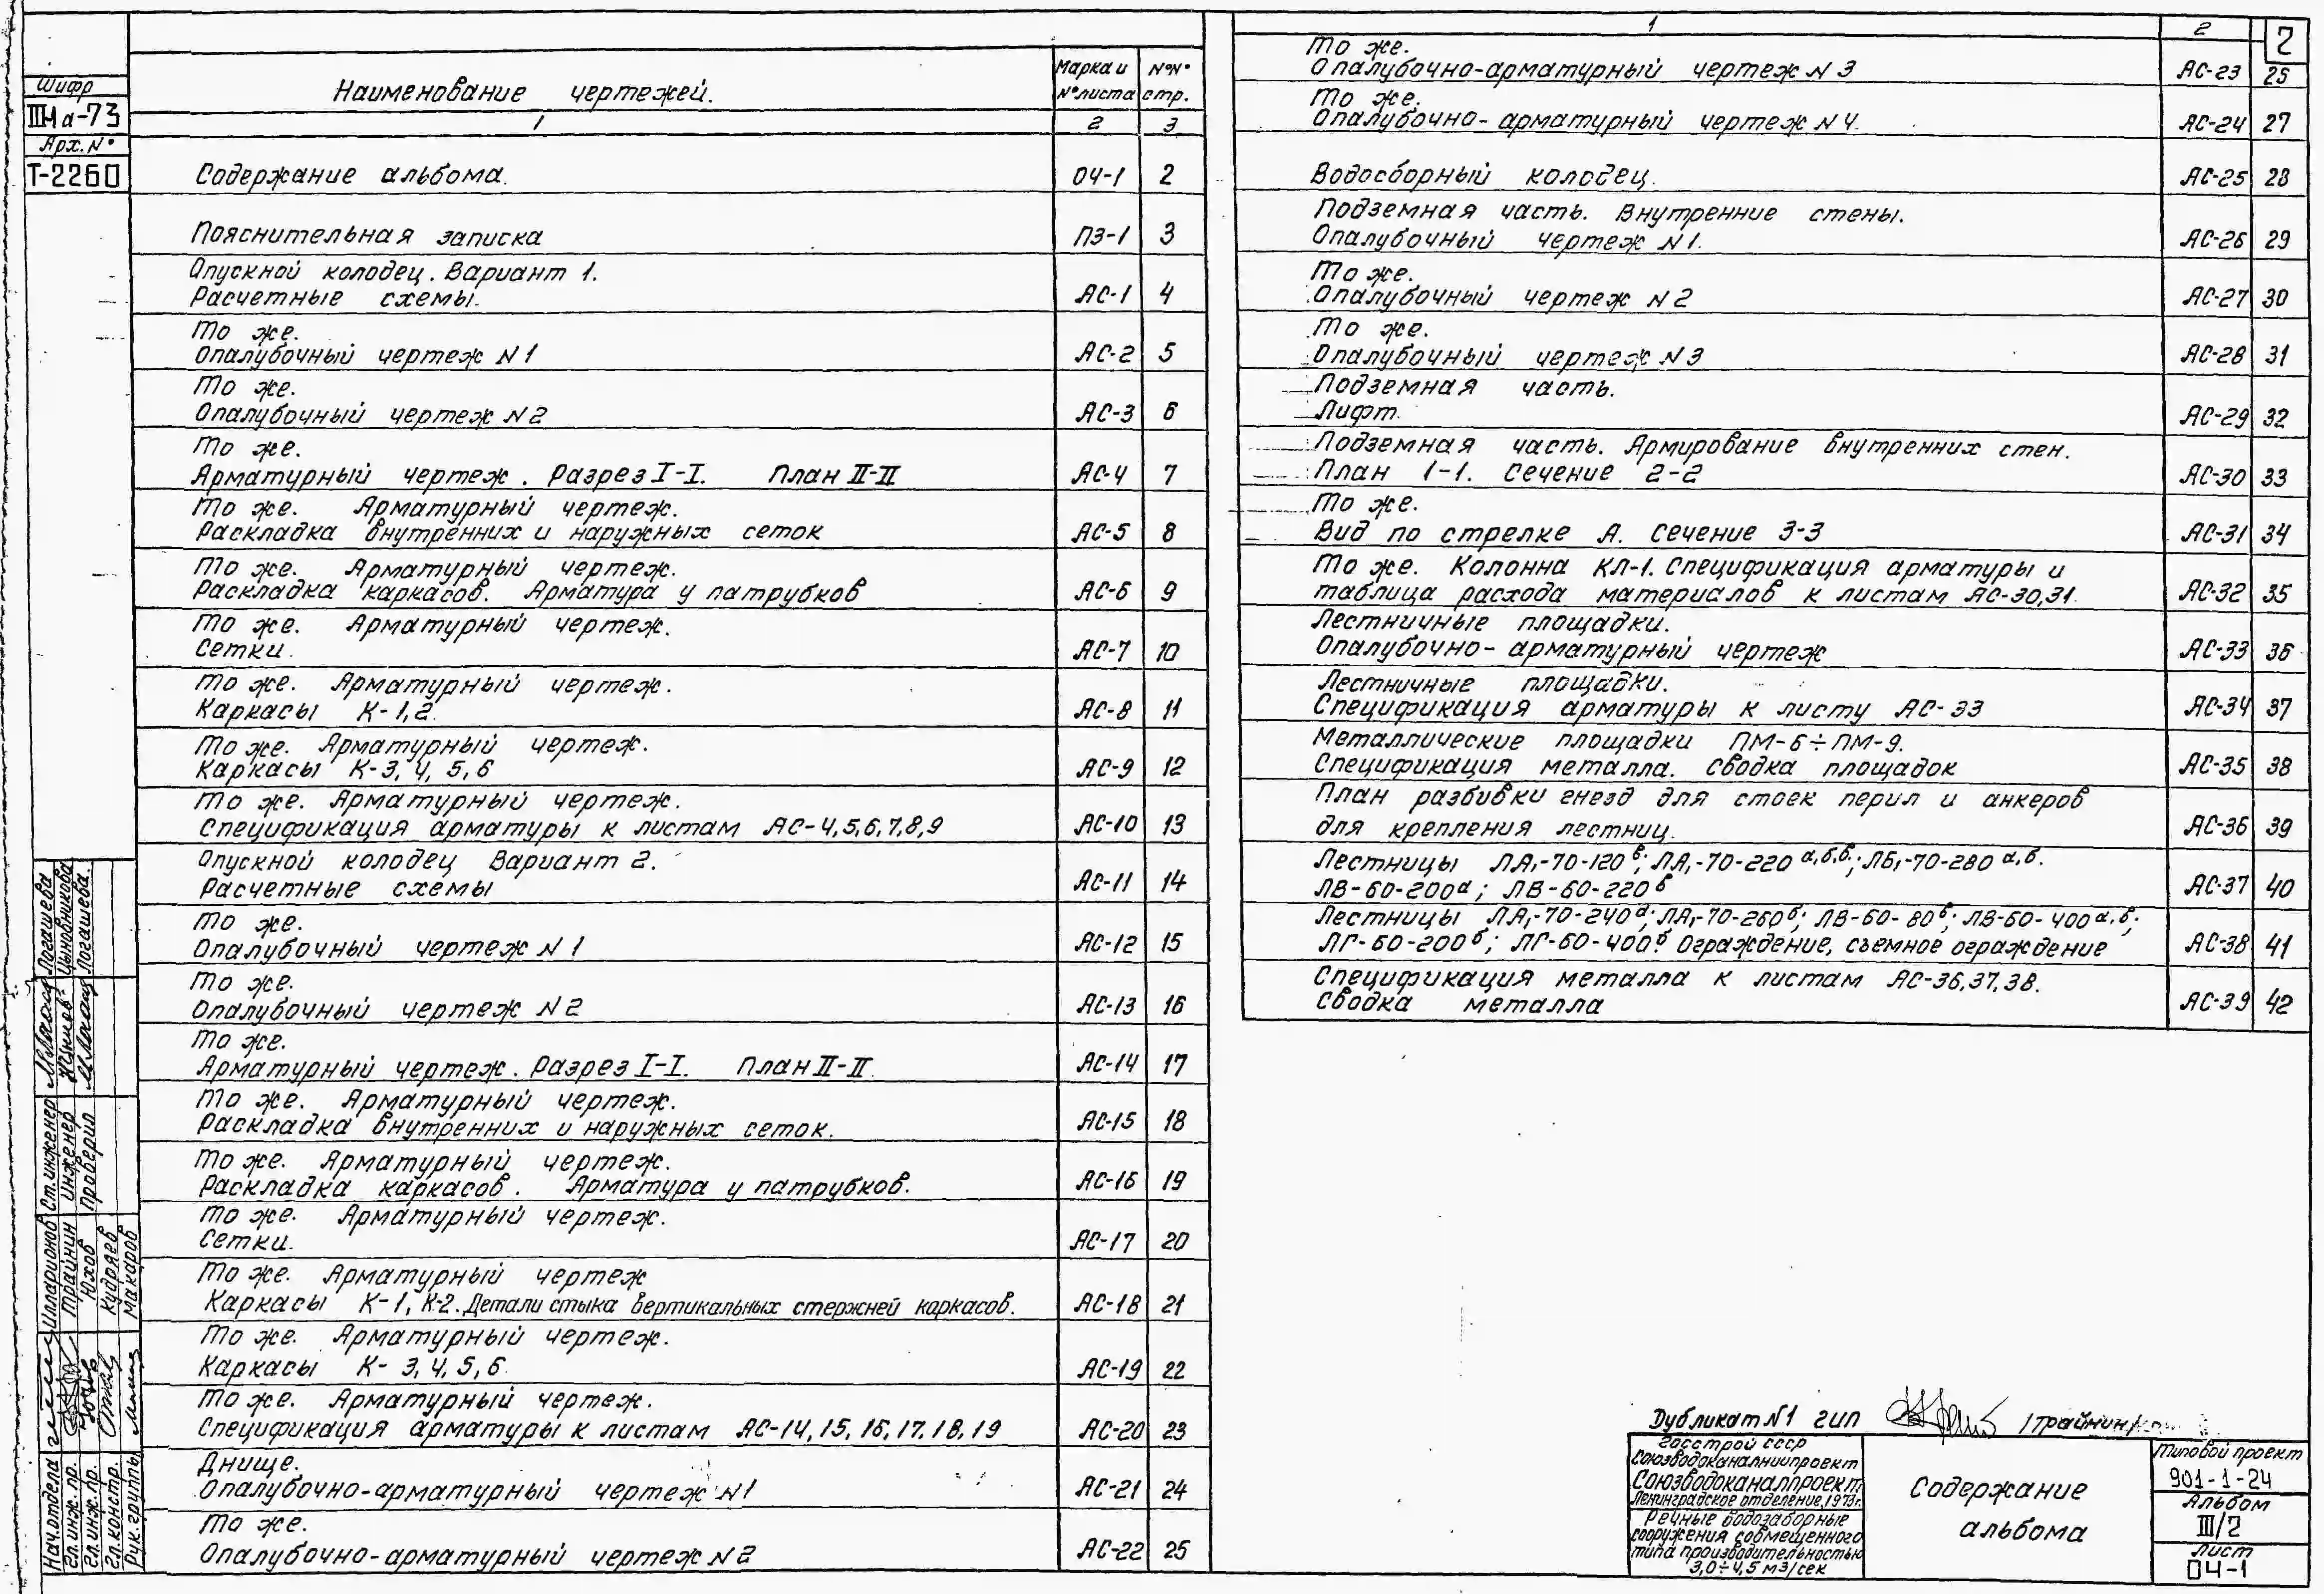 Шифр
IIIна-73
Арх.N°
Т-2260
Наименование чертежей.
Марка и N°листа
N°N° стр.
1 2 3
Содержание альбома. ОЧ-1 2
Пояснительная записка ПЗ-1 3
Опускной колодец. Вариант 1.
Расчетные схемы. АС-1 4
То же.
Опалубочный чертеж N1 АС-2 5
То же.
Опалубочный чертеж N2 АС-3 6
То же.
Арматурный чертеж. Разрез I-I. План II-II АС-4 7
То же. Арматурный чертеж.
Раскладка внутренних и наружных сеток АС-5 8
То же. Арматурный чертеж.
Раскладка каркасов. Арматура у патрубков АС-6 9
То же. Арматурный чертеж.
Сетки. АС-7 10
То же. Арматурный чертеж.
Каркасы К-1,2. АС-8 11
То же. Арматурный чертеж.
Каркасы К-3, 4, 5, 6 АС-9 12
То же. Арматурный чертеж.
Спецификация арматуры к листам АС-4,5,6,7,8,9 АС-10 13
Опускной колодец Вариант 2.
Расчетные схемы АС-11 14
То же.
Опалубочный чертеж N1 АС-12 15
То же.
Опалубочный чертеж N2 АС-13 16
То же.
Арматурный чертеж. Разрез I-I. План II-II. АС-14 17
То же. Арматурный чертеж.
Раскладка внутренних и наружных сеток. АС-15 18
То же. Арматурный чертеж.
Раскладка каркасов. Арматура у патрубков. АС-16 19
То же. Арматурный чертеж.
Сетки. АС-17 20
То же. Арматурный чертеж
Каркасы К-1, К-2. Детали стыка вертикальных стержней каркасов. АС-18 21
То же. Арматурный чертеж.
Каркасы К- 3, 4, 5, 6. АС-19 22
То же. Арматурный чертеж.
Спецификация арматуры к листам АС-14, 15, 16, 17, 18, 19 АС-20 23
Днище.
Опалубочно-арматурный чертеж N1 АС-21 24
То же.
Опалубочно-арматурный чертеж N2 АС-22 25
1 2
2
То же.
Опалубочно-арматурный чертеж N3 АС-23 25
То же.
Опалубочно-арматурный чертеж N4. АС-24 27
Водосборный колодец. АС-25 28
Подземная часть. Внутренние стены.
Опалубочный чертеж N1. АС-26 29
То же.
Опалубочный чертеж N2 АС-27 30
То же.
Опалубочный чертеж N3 АС-28 31
Подземная часть.
Лифт. АС-29 32
Подземная часть. Армирование внутренних стен.
План 1-1. Сечение 2-2 АС-30 33
То же.
Вид по стрелке А. Сечение 3-3 АС-31 34
То же. Колонна КЛ-1. Спецификация арматуры и
таблица расхода материалов к листам АС-30,31. АС-32 35
Лестничные площадки.
Опалубочно-арматурный чертеж АС-33 36
Лестничные площадки.
Спецификация арматуры к листу АС-33 АС-34 37
Металлические площадки ПМ-6÷ПМ-9.
Спецификация металла. Сводка площадок АС-35 38
План разбивки гнезд для стоек перил и анкеров
для крепления лестниц. АС-36 39
Лестницы ЛА1-70-120в; ЛА1-70-220а,б,в.; ЛБ1-70-280а,б.
ЛВ-60-200а; ЛВ-60-220б АС-37 40
Лестницы ЛА1-70-240а; ЛА1-70-260б; ЛВ-60-80в; ЛВ-60-400а,в;
ЛГ-60-200б; ЛГ-60-400б Ограждение, съемное ограждение АС-38 41
Спецификация металла к листам АС-36,37,38.
Сводка металла АС-39 42
Логашева
Цыновникова
Логашева.
Ст.инженер
Инженер
Проверил
Илларионов
Трайнин
Юхов
Кудряев
Макаров
Нач.отдела
Гл.инж.пр.
Гл.инж.пр.
Гл.констр.
Рук.группы
Дубликат N1 ГИП /Трайнин/
Госстрой СССР
Союзводоканалниипроект
Союзводоканалпроект
Ленинградское отделение, 1973г.
Речные водозаборные
сооружения совмещенного
типа производительностью
3,0÷4,5 м3/сек
Содержание
альбома
Типовой проект
901-1-24
Альбом
III/2
Лист
ОЧ-1